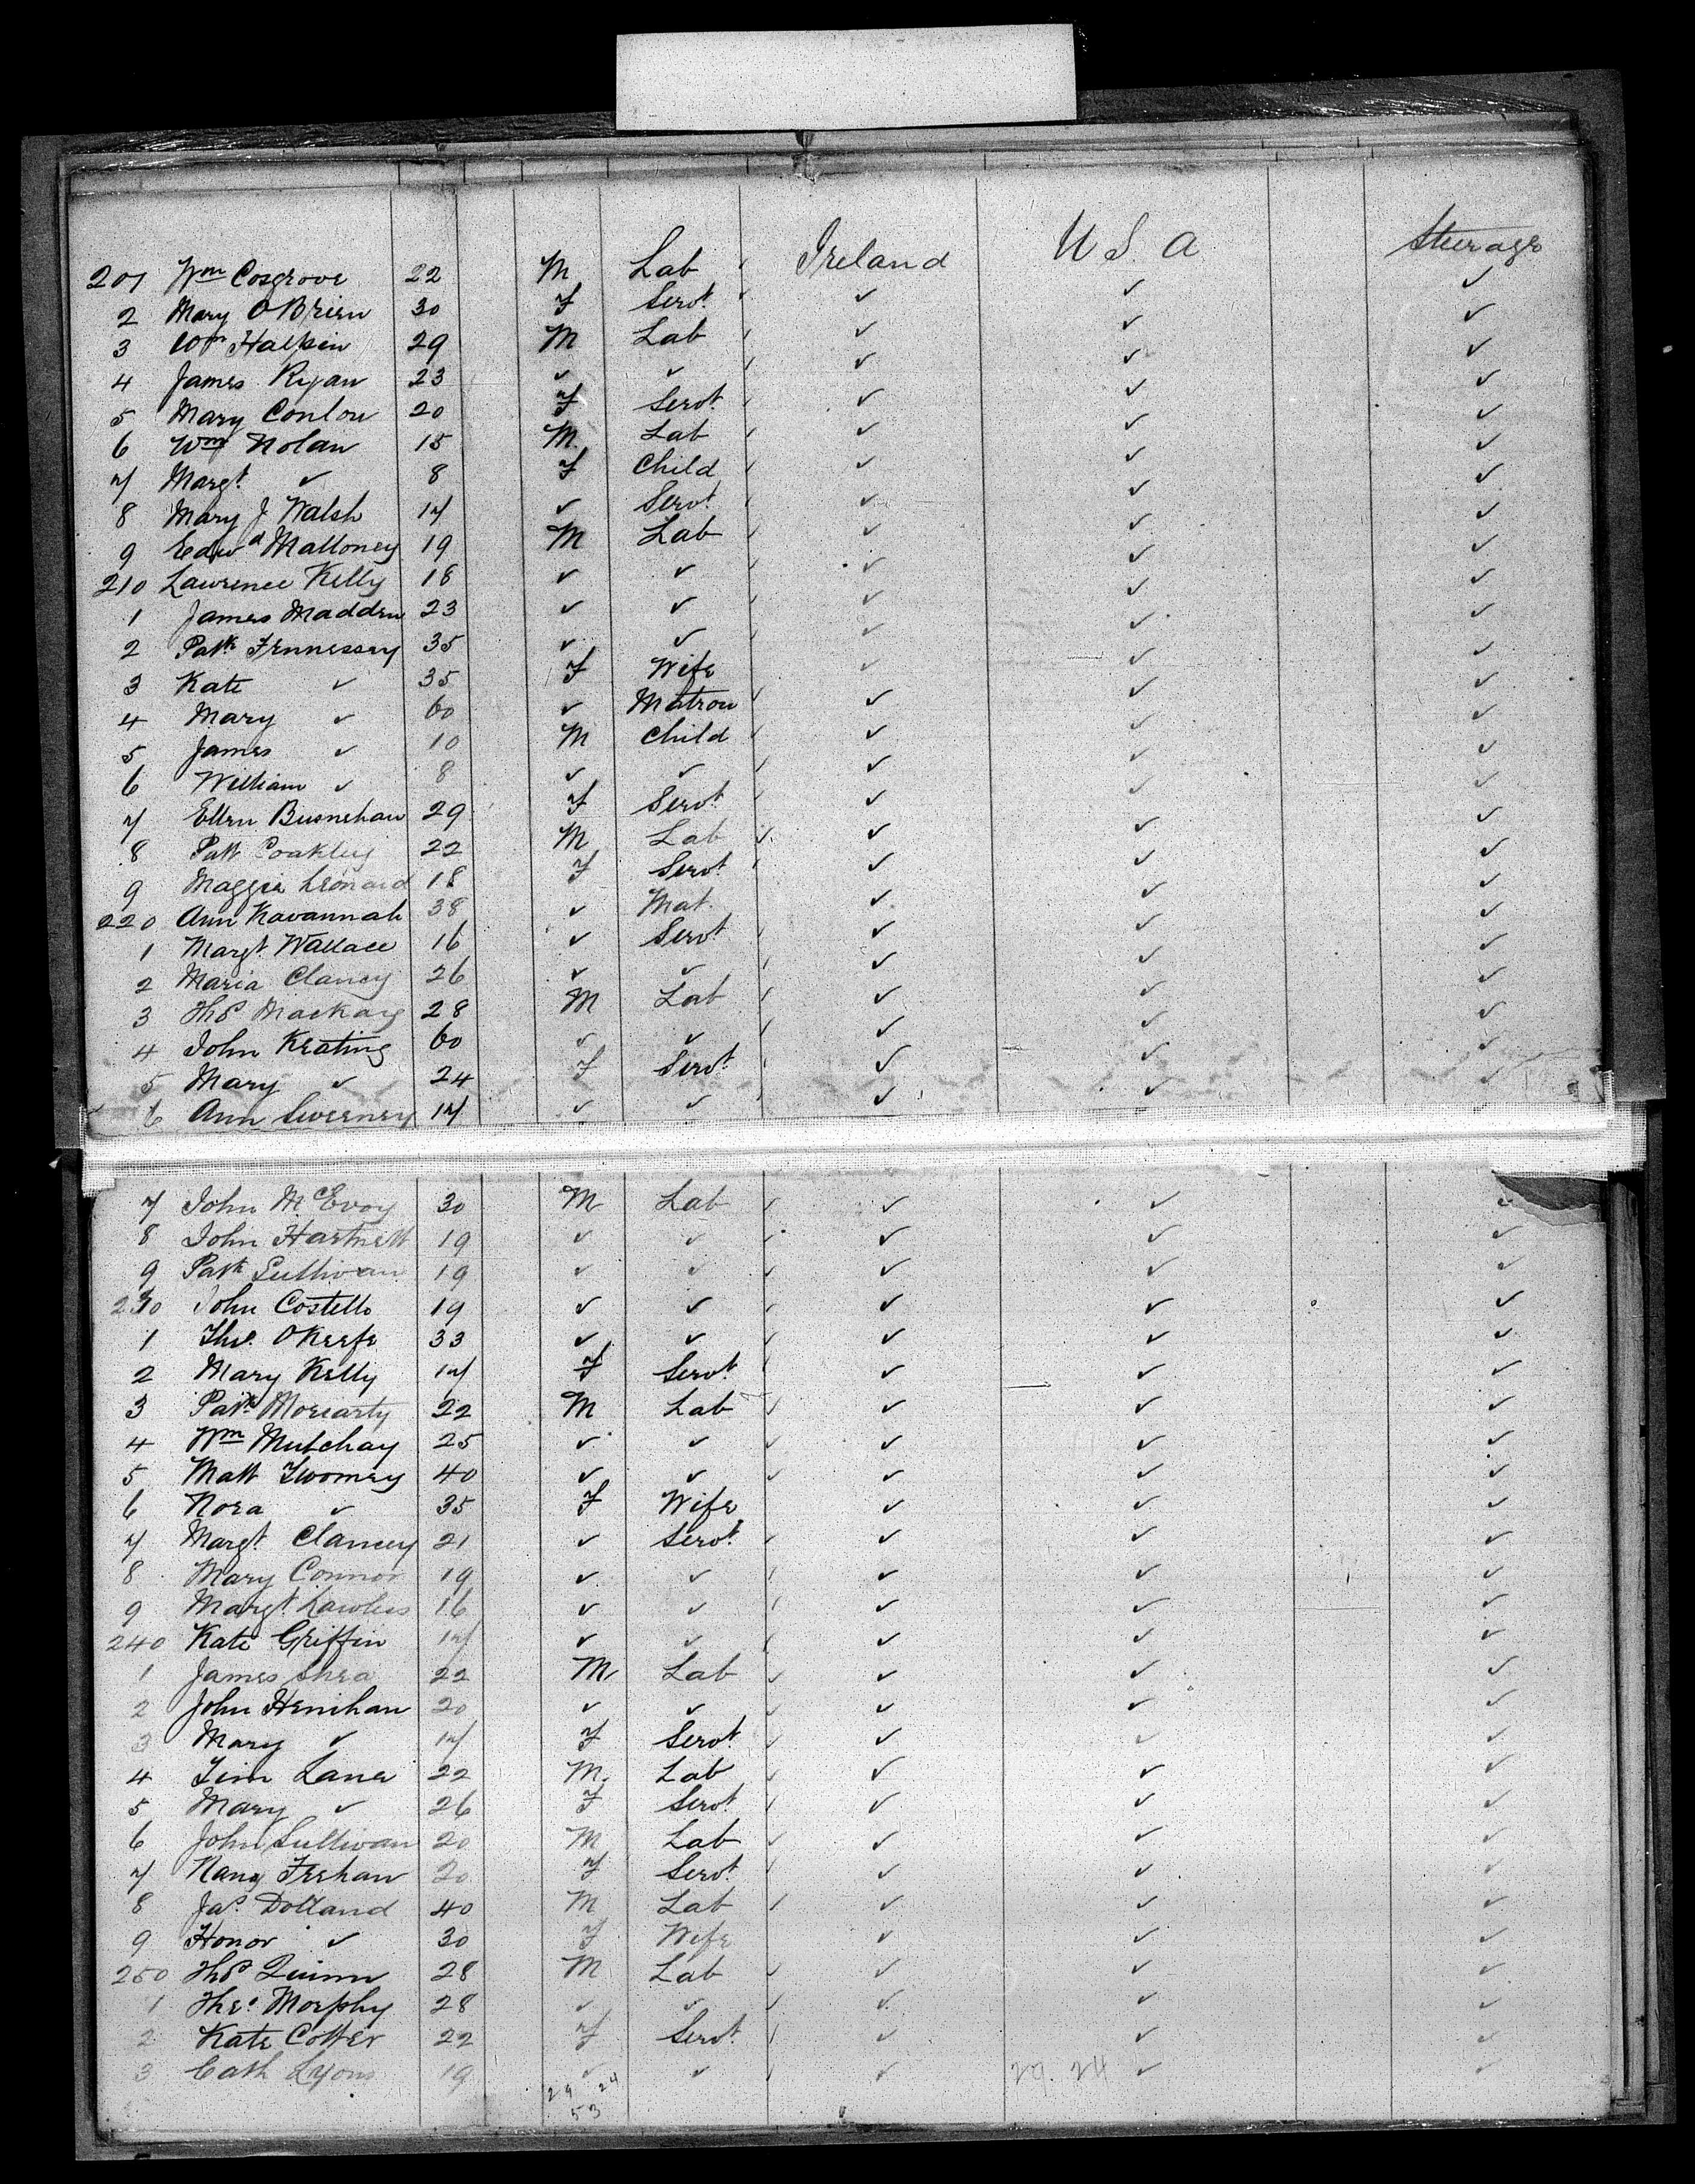 201 Wm Cosgrove 22 M Lab Ireland U S A Steerage
2 Mary O Brien 30 F Servt ✓ ✓ ✓
3 Wm Halpin 29 M Lab ✓ ✓ ✓
4 James Ryan 23 ✓ ✓ ✓ ✓ ✓
5 Mary Conlon 20 F Servt ✓ ✓ ✓
6 Wm Nolan 15 M Lab ✓ ✓ ✓
7 Margt ✓ 8 F Child ✓ ✓ ✓
8 Mary J Walsh 17 ✓ Servt ✓ ✓ ✓
9 Edwd Malloney 19 M Lab ✓ ✓ ✓
210 Lawrence Kelly 18 ✓ ✓ ✓ ✓ ✓
1 James Madden 23 ✓ ✓ ✓ ✓ ✓
2 Patk Fennessey 35 ✓ ✓ ✓ ✓ ✓
3 Kate ✓ 35 F Wife ✓ ✓ ✓
4 Mary ✓ 60 ✓ Matron ✓ ✓ ✓
5 James ✓ 10 M Child ✓ ✓ ✓
6 William ✓ 8 ✓ ✓ ✓ ✓ ✓
7 Ellen 29 F Servt ✓ ✓ ✓
8 Patk Coakley 22 M Lab ✓ ✓ ✓
9 Maggie Leonard 18 F Servt ✓ ✓ ✓
220 Ann Kavannah 38 ✓ Mat. ✓ ✓ ✓
1 Margt Wallace 16 ✓ Servt ✓ ✓ ✓
2 Maria Clancy 26 ✓ ✓ ✓ ✓ ✓
3 Thos Mackay 28 M Lab ✓ ✓ ✓
4 John Keating 60 ✓ ✓ ✓ ✓ ✓
5 Mary ✓ 24 F Servt ✓ ✓ ✓
6 Ann Sweeney 17 ✓ ✓ ✓ ✓ ✓
7 John McEvoy 30 M Lab ✓ ✓ ✓
8 John Hartnett 19 ✓ ✓ ✓ ✓ ✓
9 Patk Sullivan 19 ✓ ✓ ✓ ✓ ✓
230 John Costello 19 ✓ ✓ ✓ ✓ ✓
1 Thos O Keefe 33 ✓ ✓ ✓ ✓ ✓
2 Mary Kelly 17 F Servt ✓ ✓ ✓
3 Patk Moriarty 22 M Lab ✓ ✓ ✓
4 Wm 25 ✓ ✓ ✓ ✓ ✓
5 Matt Twomey 40 ✓ ✓ ✓ ✓ ✓
6 Nora ✓ 35 F Wife ✓ ✓ ✓
7 Margt Clancey 21 ✓ Servt ✓ ✓ ✓
8 Mary Connor 19 ✓ ✓ ✓ ✓ ✓
9 Margt Lawless 16 ✓ ✓ ✓ ✓ ✓
240 Kate Griffin 17 ✓ ✓ ✓ ✓ ✓
1 James Shea 22 M Lab ✓ ✓ ✓
2 John Henihan 20 ✓ ✓ ✓ ✓ ✓
3 Mary ✓ 17 F Servt ✓ ✓ ✓
4 Tim Lane 22 M Lab ✓ ✓ ✓
5 Mary ✓ 26 F Servt ✓ ✓ ✓
6 John Sullivan 20 M Lab ✓ ✓ ✓
7 Nancy Feehan 20 F Servt ✓ ✓ ✓
8 Jas Dolland 40 M Lab ✓ ✓ ✓
9 Honor ✓ 30 F Wife ✓ ✓ ✓
250 Thos Quinn 28 M Lab ✓ ✓ ✓
1 Thos Morphy 28 ✓ ✓ ✓ ✓ ✓
2 Kate Cotter 22 F Servt ✓ ✓ ✓
3 Cath Lyons 19 ✓ ✓ ✓ 29. 24 ✓ ✓
29 24
53